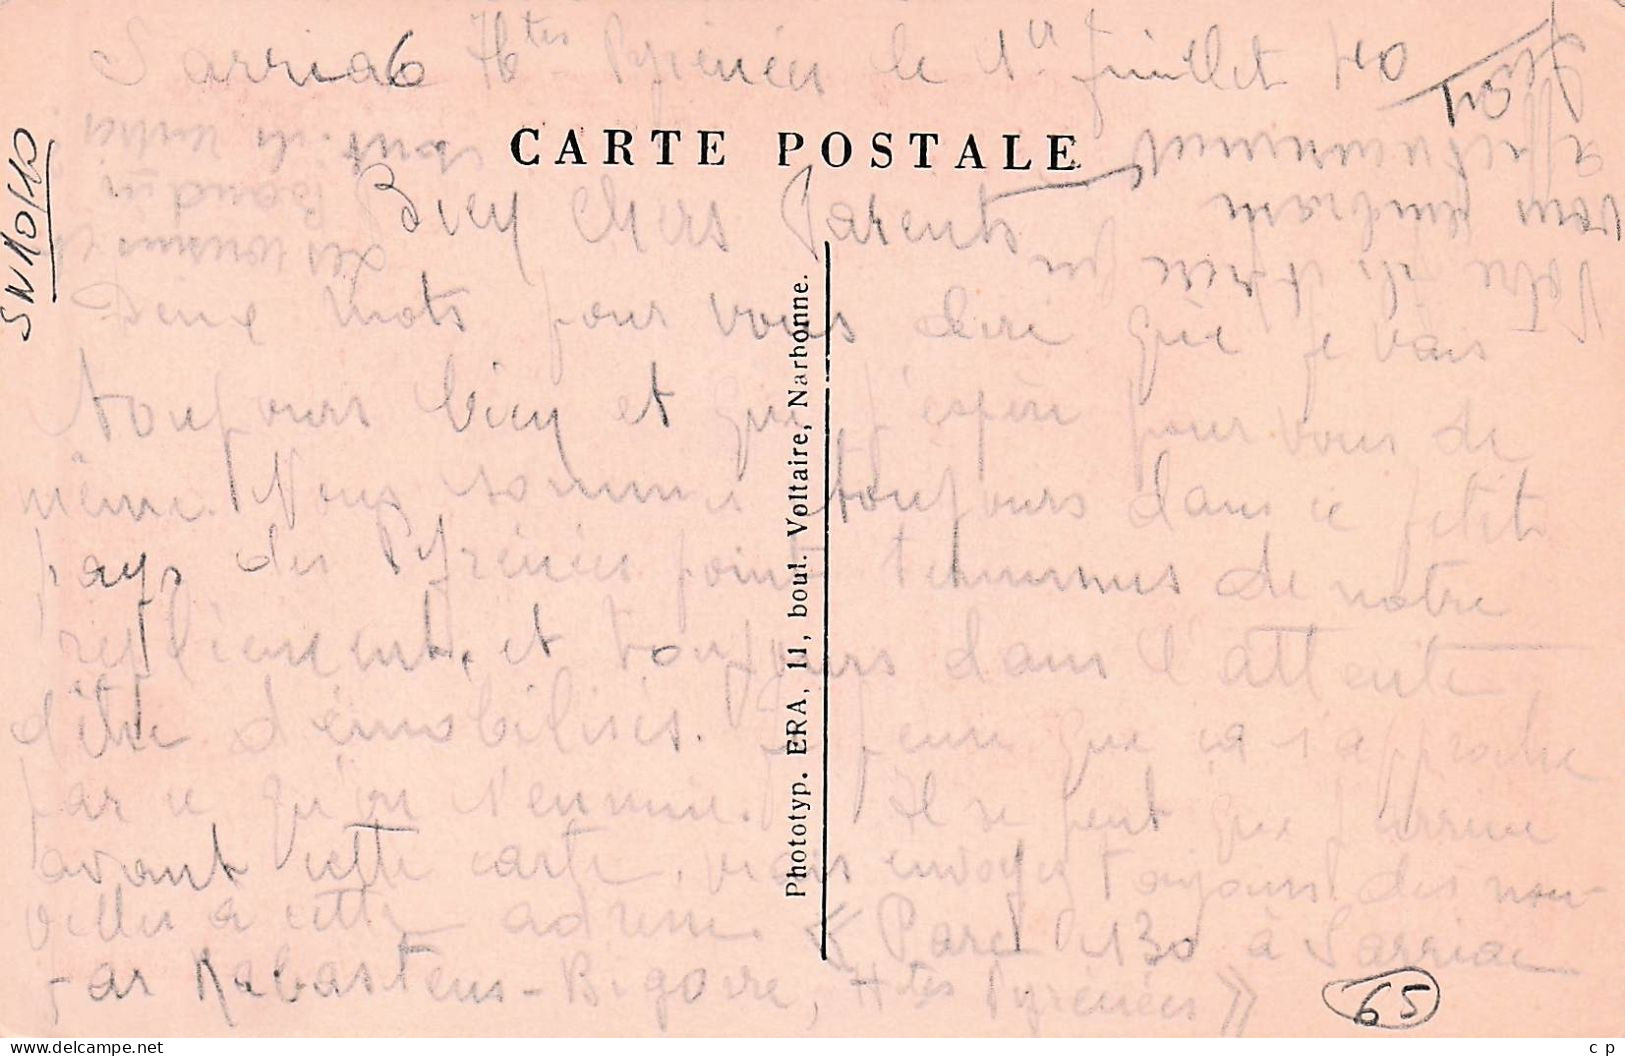 Sarriac Htes Pyrénées le 1er Juillet 40
CARTE POSTALE
Bien Chers Parents
Deux mots pour vous dire que je vais
toujours bien et que j'espère pour vous de
même. Nous sommes toujours dans ce petit
pays des Pyrénées point terminus de notre
repliement, et toujours dans l'attente
d'être démobilisés. Je pense que ça s'approche
par ce qu'on s'ennuie. Il se peut que j'arrive
avant cette carte, mais envoyez toujours des nou-
velles à cette adresse « Parc 130 à Sarriac
par Rabastens-Bigorre, Htes Pyrénées »
Les cousins
Baudin
sont-ils
Votre fils & frère qui
vous embrasse
affectueusement
Jean
Phototyp. ERA, 11, boul. Voltaire, Narbonne.
SN 10/10
65
c p